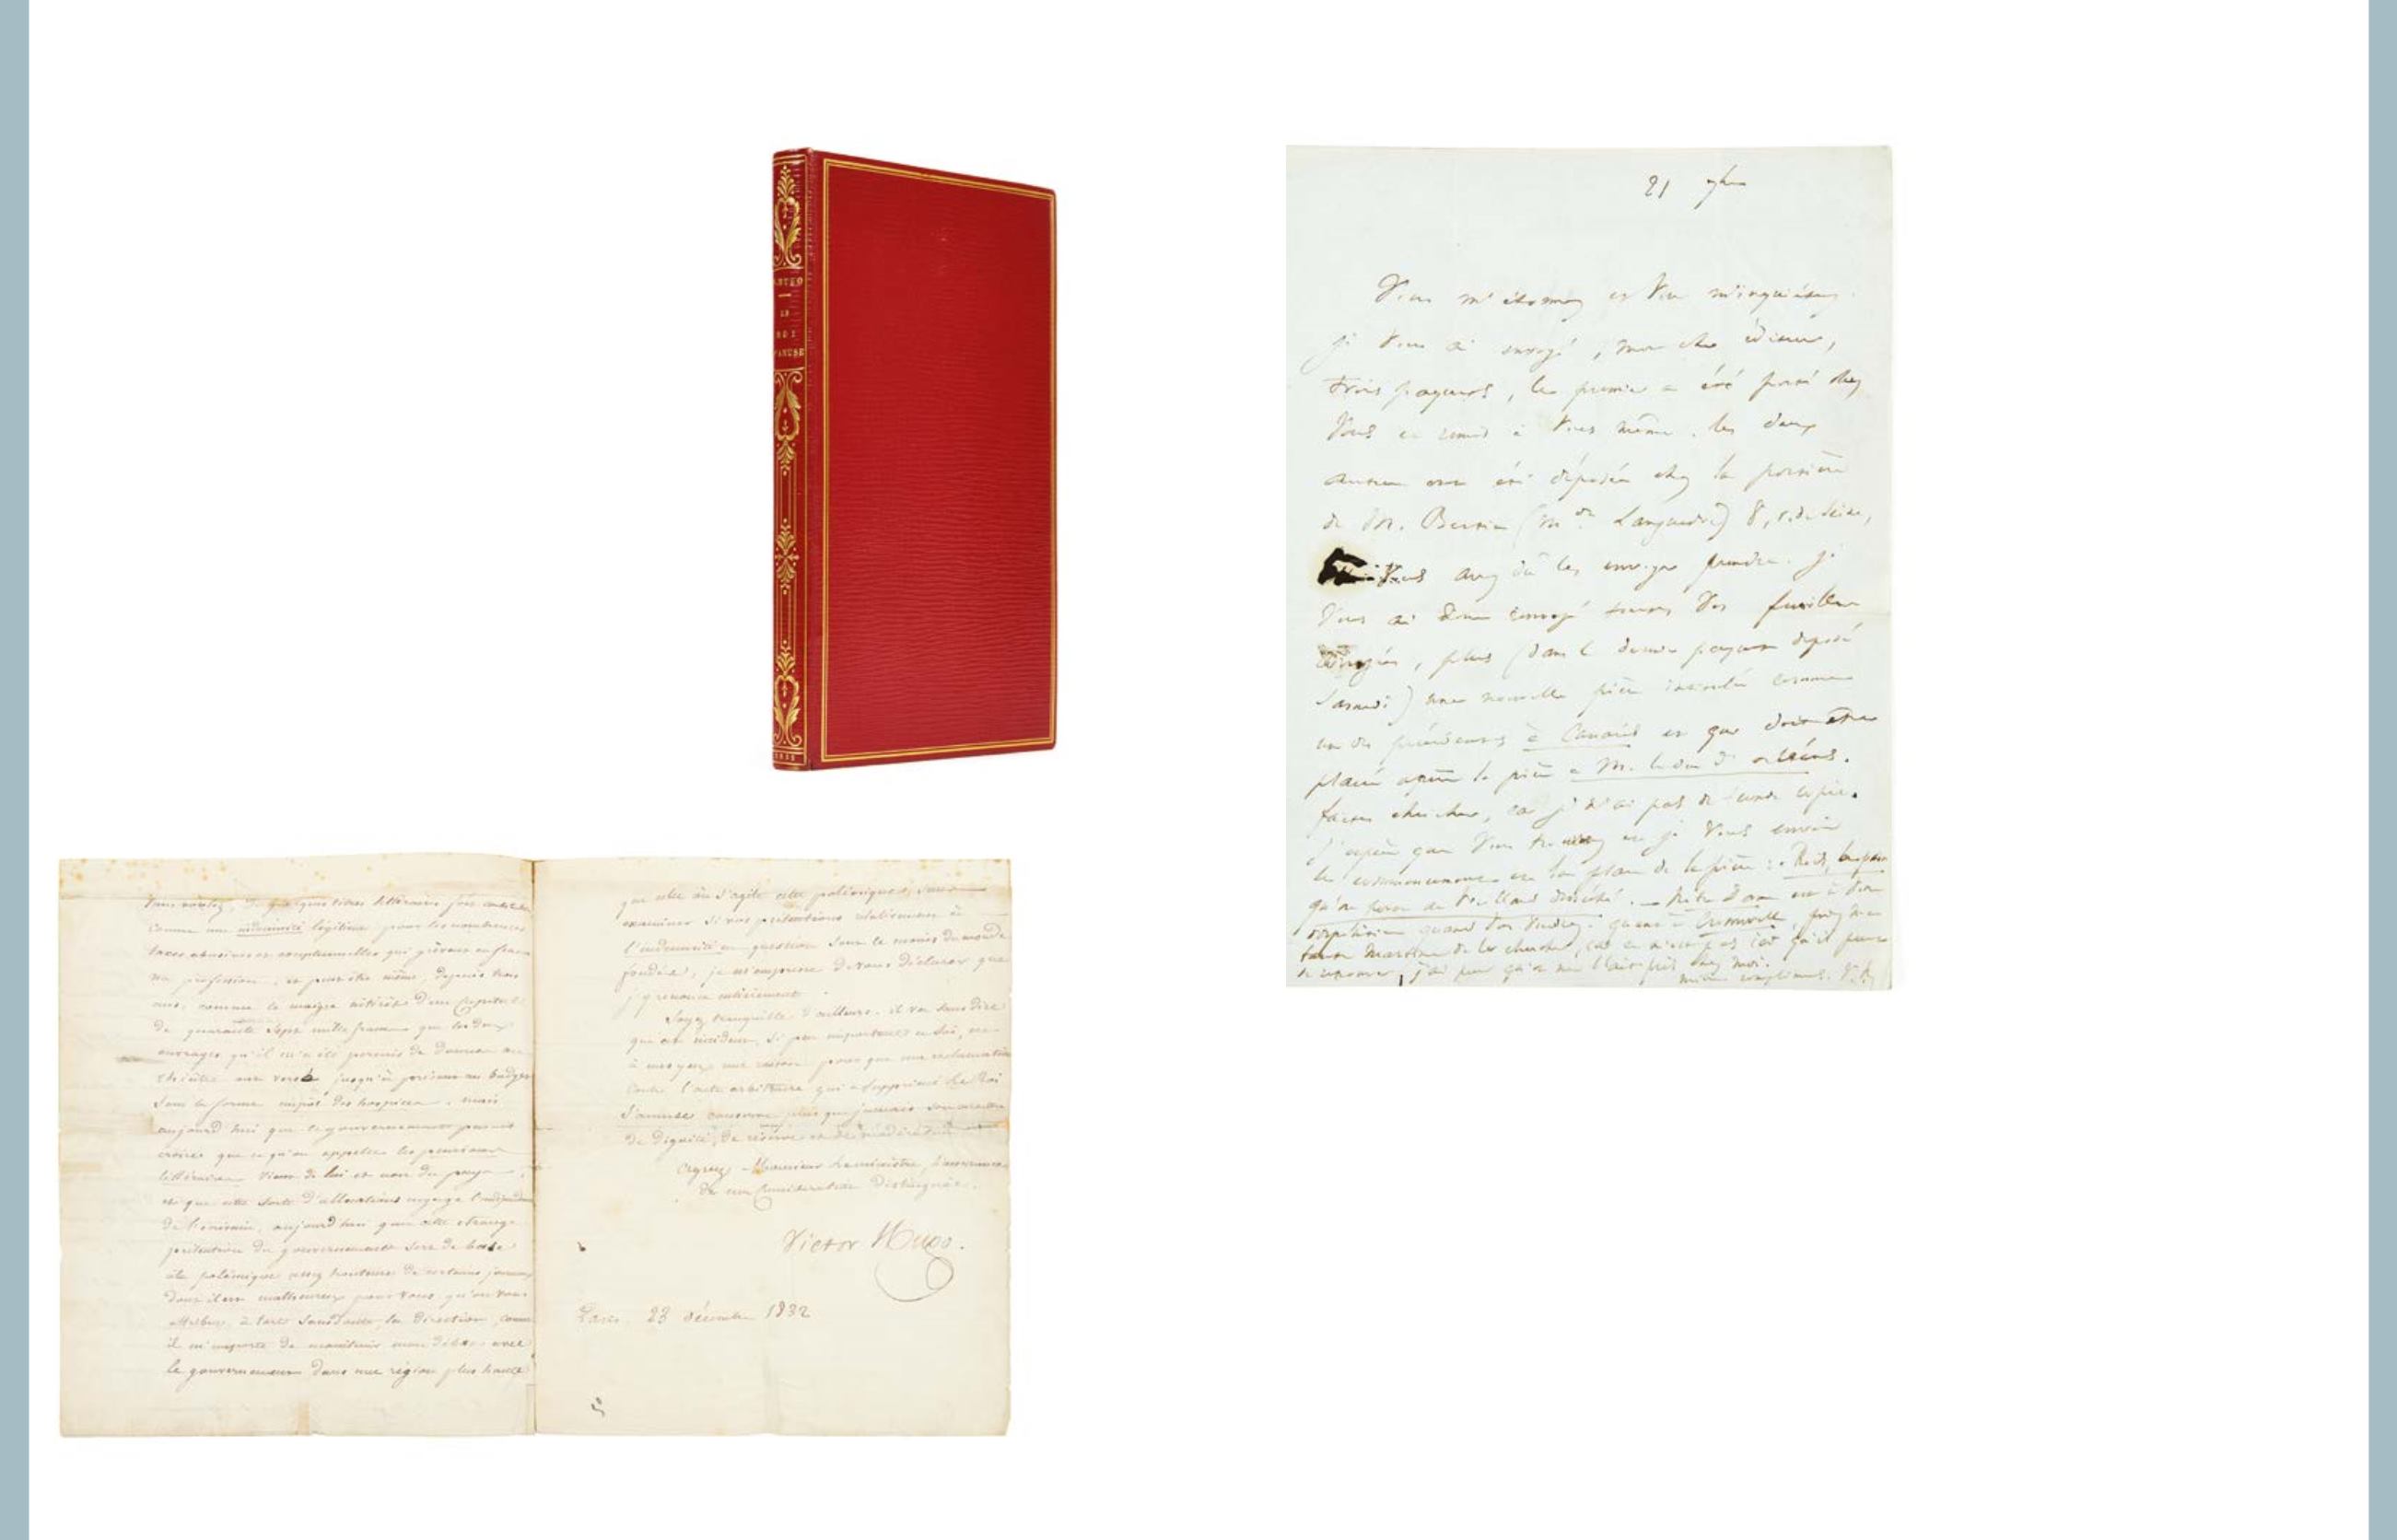 HUGO
LE
ROI
S'AMUSE
1832
21
Vous m'étonnez et vous m'inquiétez.
je vous ai envoyé, mon cher éditeur,
trois paquets, le premier a été porté chez
vous et remis à vous même. les deux
autres ont été déposés chez la portière
de M. Bertin (md. Languedoc) 8, r. de Seine,
Vous avez dû les envoyer prendre. je
Vous ai donc envoyé toutes vos feuilles
corrigées, plus (dans le dernier paquet déposé
samedi) une nouvelle pièce intitulée comme
une des précédentes à Canaris et qui doit être
placée après la pièce à M. le duc d'orléans.
faites chercher, car je n'ai pas de seconde copie.
j'espère que vous trouverez
le commencement la place de la pièce :
qu'on
répétition quand vous voudrez. quant à
de le chercher, car ce n'est pas ici qu'il peut
se retrouver, j'ai peur qu'on ne l'ait pris chez moi.
mille compliments. V. h.
vous voulez, de quelques titres littéraires
comme une indemnité légitime pour les nombreuses
taxes abusives et exceptionnelles qui grèvent en france
ma profession, et peut-être même, depuis trois
ans, comme le maigre intérêt d'un capital
de quarante sept mille francs que les deux
ouvrages qu'il m'a été permis de donner au
théâtre ont versé jusqu'à présent au budget
sous la forme impôt des hospices. mais
aujourd'hui que le gouvernement paraît
croire que ce qu'on appelle les pensions
littéraires vient de lui et non du pays,
et que cette sorte d'allocations engage l'indépendance
de l'écrivain, aujourd'hui que cette étrange
prétention du gouvernement sert de base
à la polémique assez honteuse de certains journaux
dont il est malheureux pour vous qu'on vous
attribue, à tort sans doute, la direction, comme
il m'importe de maintenir mon débat avec
le gouvernement dans une région plus haute
que celle où s'agite cette polémique, sans
examiner si vos prétentions relativement à
l'indemnité en question sont le moins du monde
fondées, je m'empresse de vous déclarer que
j'y renonce entièrement.
Soyez tranquille d'ailleurs. il va sans dire
que cet incident, si peu important en soi, est
à mes yeux une raison pour que ma réclamation
contre l'acte arbitraire qui a supprimé Le Roi
s'amuse conserve plus que jamais son caractère
de dignité, de réserve et de modération
Agréez, Monsieur le ministre, l'assurance
de ma considération distinguée.
Victor Hugo.
Paris. 23 décembre 1832